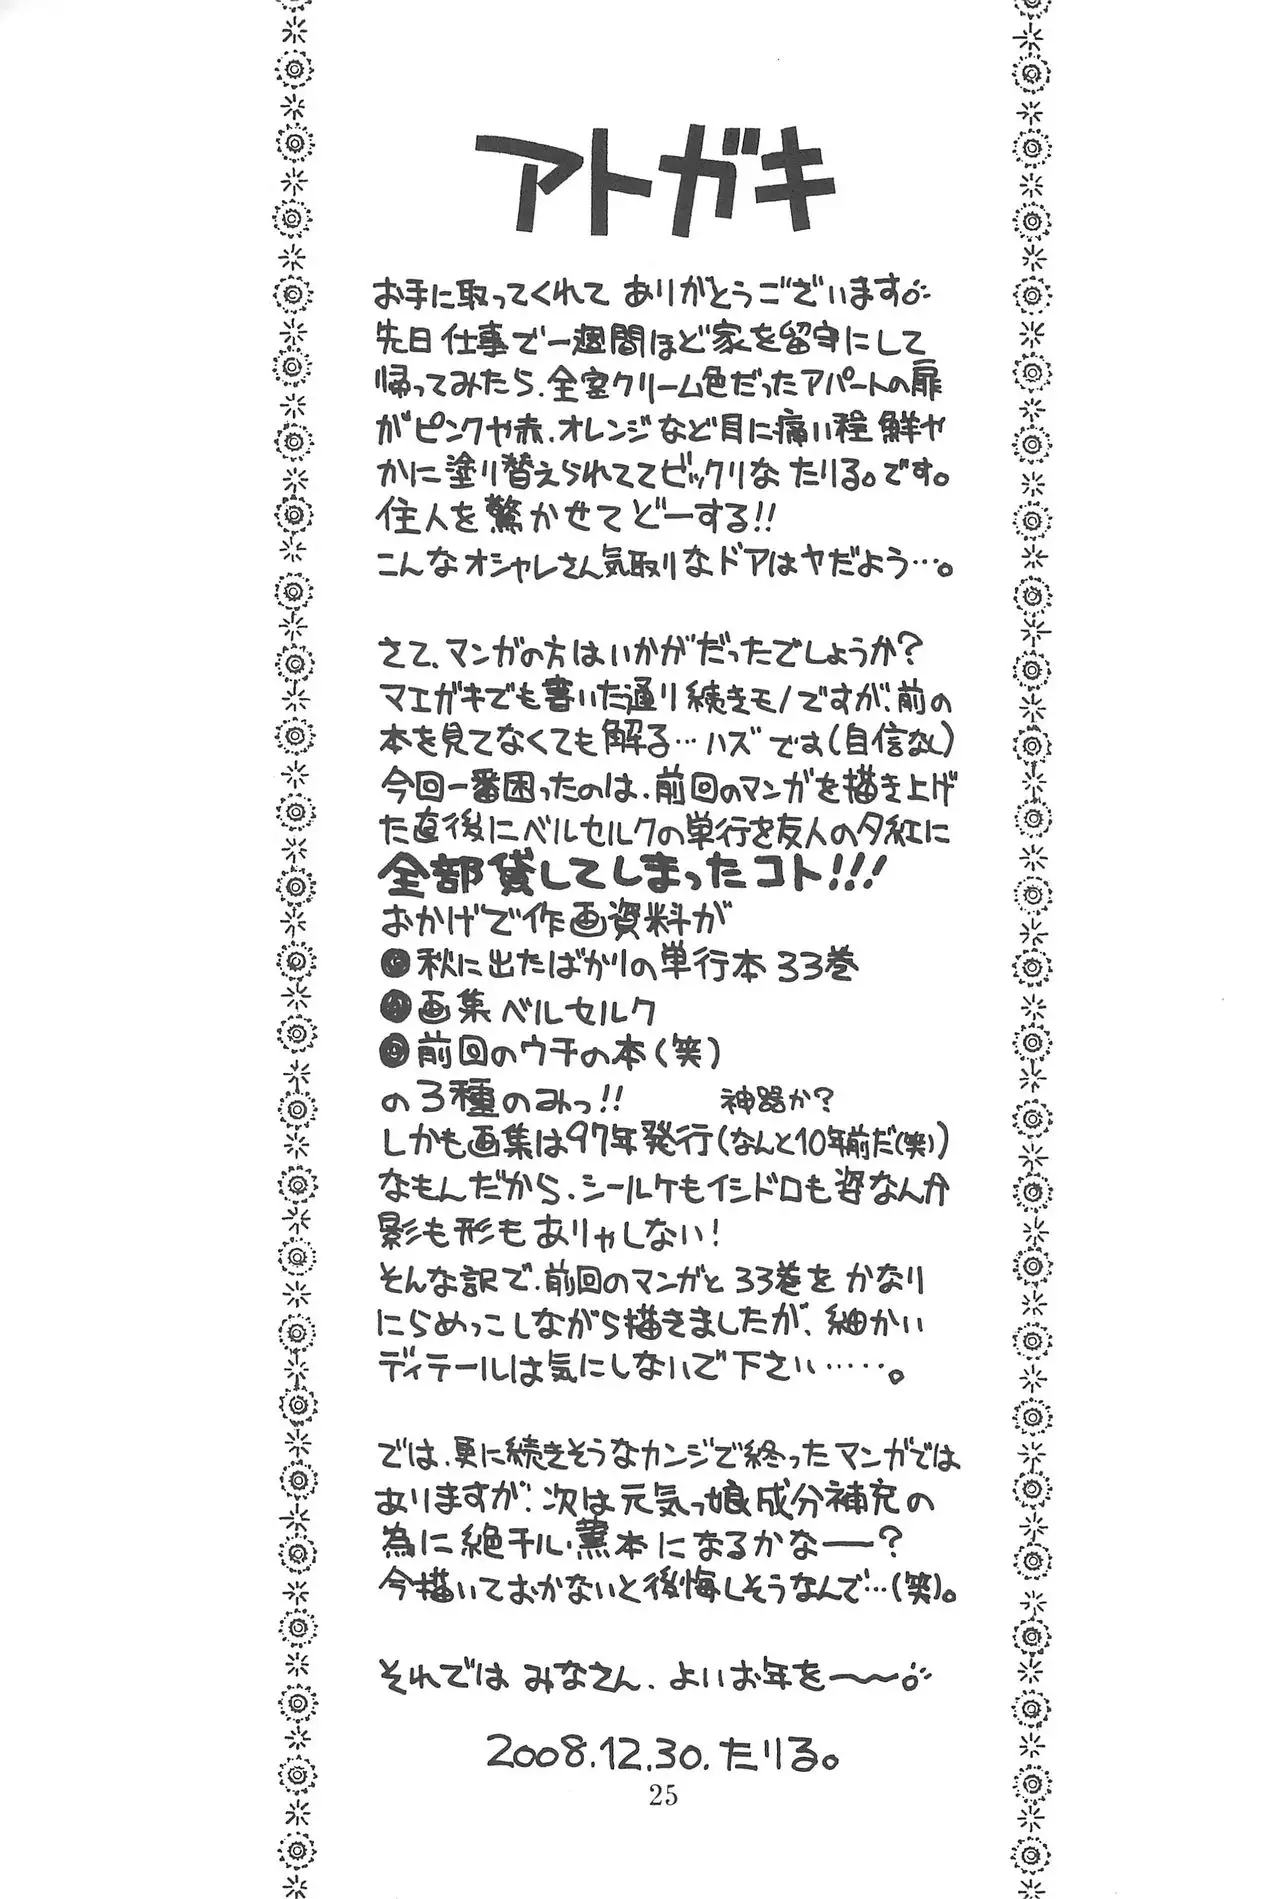 アトガキ
お手に取ってくれて ありがとうございます。
先日仕事で一週間ほど家を留守にして
帰ってみたら、全室クリーム色だったアパートの扉
がピンクや赤、オレンジなど目に痛い程 鮮や
かに塗り替えられててビックリな たりる。です。
住人を驚かせてどーする!!
こんなオシャレさん気取りなドアはヤだよう…。
さて、マンガの方はいかがだったでしょうか?
マエガキでも書いた通り続きモノですが、前の
本を見てなくても解る…ハズです(自信なし)
今回一番困ったのは、前回のマンガを描き上げ
た直後にベルセルクの単行を友人の夕紅に
全部貸してしまったコト!!!
おかげで作画資料が
●秋に出たばかりの単行本33巻
●画集 ベルセルク
●前回のウチの本(笑)
の3種のみっ!! 神器か?
しかも画集は97年発行(なんと10年前だ(笑))
なもんだから、シールケもイシドロも姿なんか
影も形もありゃしない!
そんな訳で、前回のマンガと33巻をかなり
にらめっこしながら描きましたが、細かい
ディテールは気にしないで下さい……。
では、更に続きそうなカンジで終ったマンガでは
ありますが、次は元気っ娘成分補充の
為に絶チル・薫本になるかなー?
今描いておかないと後悔しそうなんで…(笑)。
それでは みなさん、よいお年を〜〜。
2008.12.30.たりる。
25